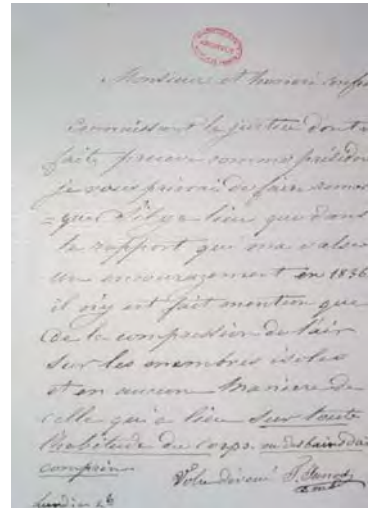 Monsieur et honoré confr
Connaissant la justice dont v
fait preuve comme présiden
je vous prierai de faire remar
=quer s'il y a lieu que dans
le rapport qui m'a valu
un encouragement en 1836
il n'y est fait mention que
de la compression de l'air
sur les membres isolés
et en aucune manière de
celle qui a lieu sur toute
l'habitude du corps. ou des bains d'air
comprimé
Votre dévoué T. Junod
Lundi